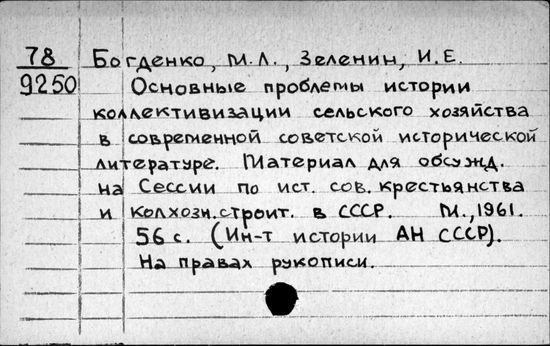 78 Богденко, М.Л., Зеленин, И.Е.
9250 Основные проблемы истории
коллективизации сельского хозяйства
в современной советской исторической
литературе. Материал для обсужд.
на Сессии по ист. сов. крестьянства
и колхозн. строит. в СССР. М., 1961.
56 с. (Ин-т истории АН СССР).
На правах рукописи.